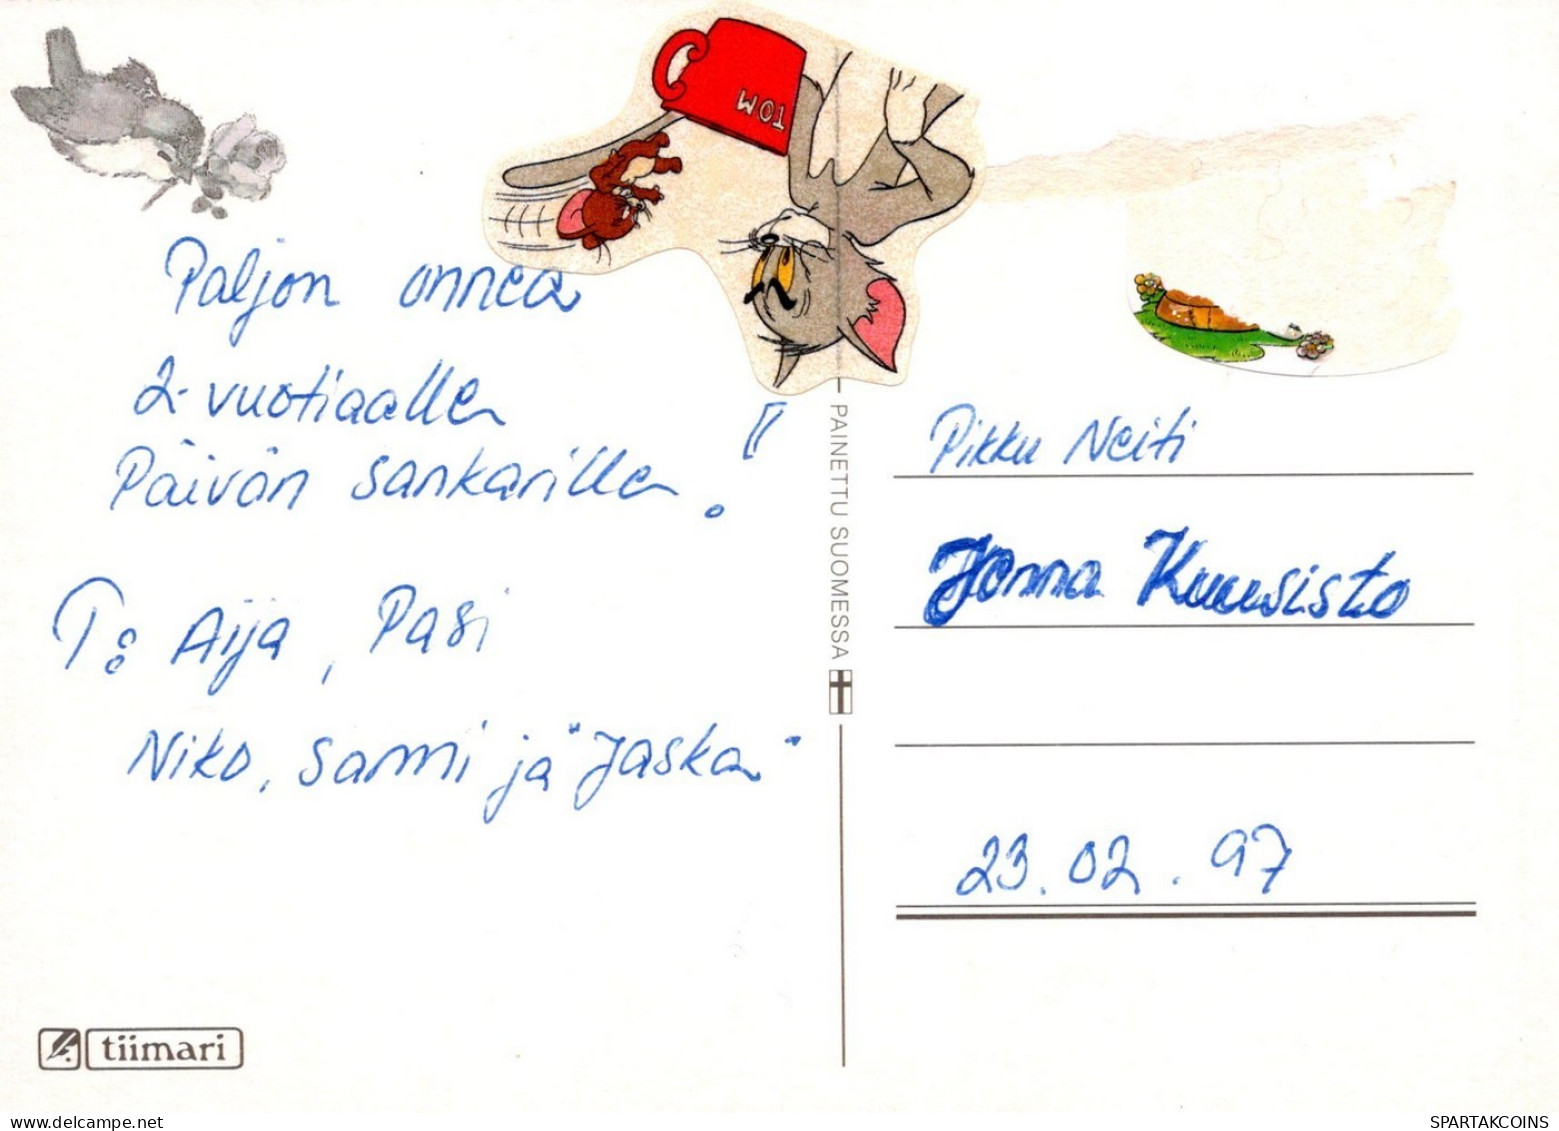 TOM
Paljon onnea
2-vuotiaalle
Päivän sankarille!
T: Aija, Pasi
Niko, Sami ja "Jaska"
tiimari
PAINETTU SUOMESSA
Pikku Neiti
Jonna Kuusisto
23.02.97
SPARTAKCOINS
delcampe.net